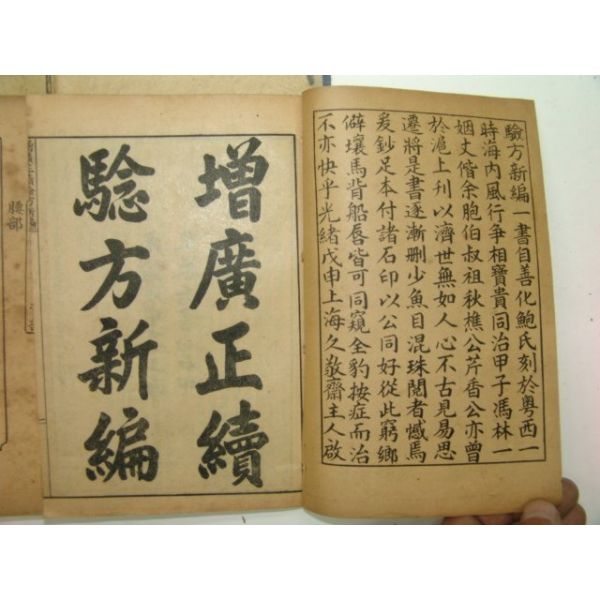 驗方新編一書自善化鮑氏刻於粤西一
時海内風行爭相寶貴同治甲子馮林一
姻丈偕余胞伯叔祖秋樵公芹香公亦曾
於滬上刋以濟世無如人心不古見易思
遷將是書逐漸删少魚目混珠閲者憾焉
爰鈔足本付諸石印以公同好從此窮鄉
僻壤馬背船唇皆可同窺全豹按症而治
不亦快乎光緒戊申上海久敬齋主人啟
增廣正續
驗方新編
腰部